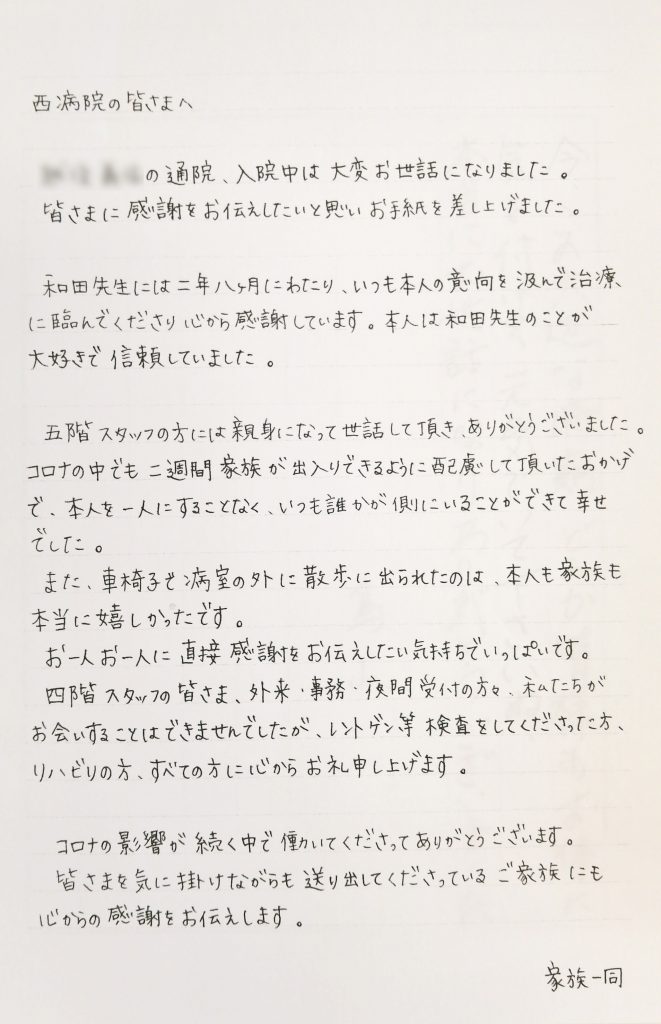 西病院の皆さまへ
の通院、入院中は大変お世話になりました。
皆さまに感謝をお伝えしたいと思いお手紙を差し上げました。
和田先生には二年八ヶ月にわたり、いつも本人の意向を汲んで治療
に臨んでくださり心から感謝しています。本人は和田先生のことが
大好きで信頼していました。
五階スタッフの方には親身になって世話して頂き、ありがとうございました。
コロナの中でも二週間家族が出入りできるように配慮して頂いたおかげ
で、本人を一人にすることなく、いつも誰かが側にいることができて幸せ
でした。
また、車椅子で病室の外に散歩に出られたのは、本人も家族も
本当に嬉しかったです。
お一人お一人に直接感謝をお伝えしたい気持ちでいっぱいです。
四階スタッフの皆さま、外来・事務・夜間受付の方々、私たちが
お会いすることはできませんでしたが、レントゲン等検査をしてくださった方、
リハビリの方、すべての方に心からお礼申し上げます。
コロナの影響が続く中で働いてくださってありがとうございます。
皆さまを気に掛けながらも送り出してくださっているご家族にも
心からの感謝をお伝えします。
家族一同